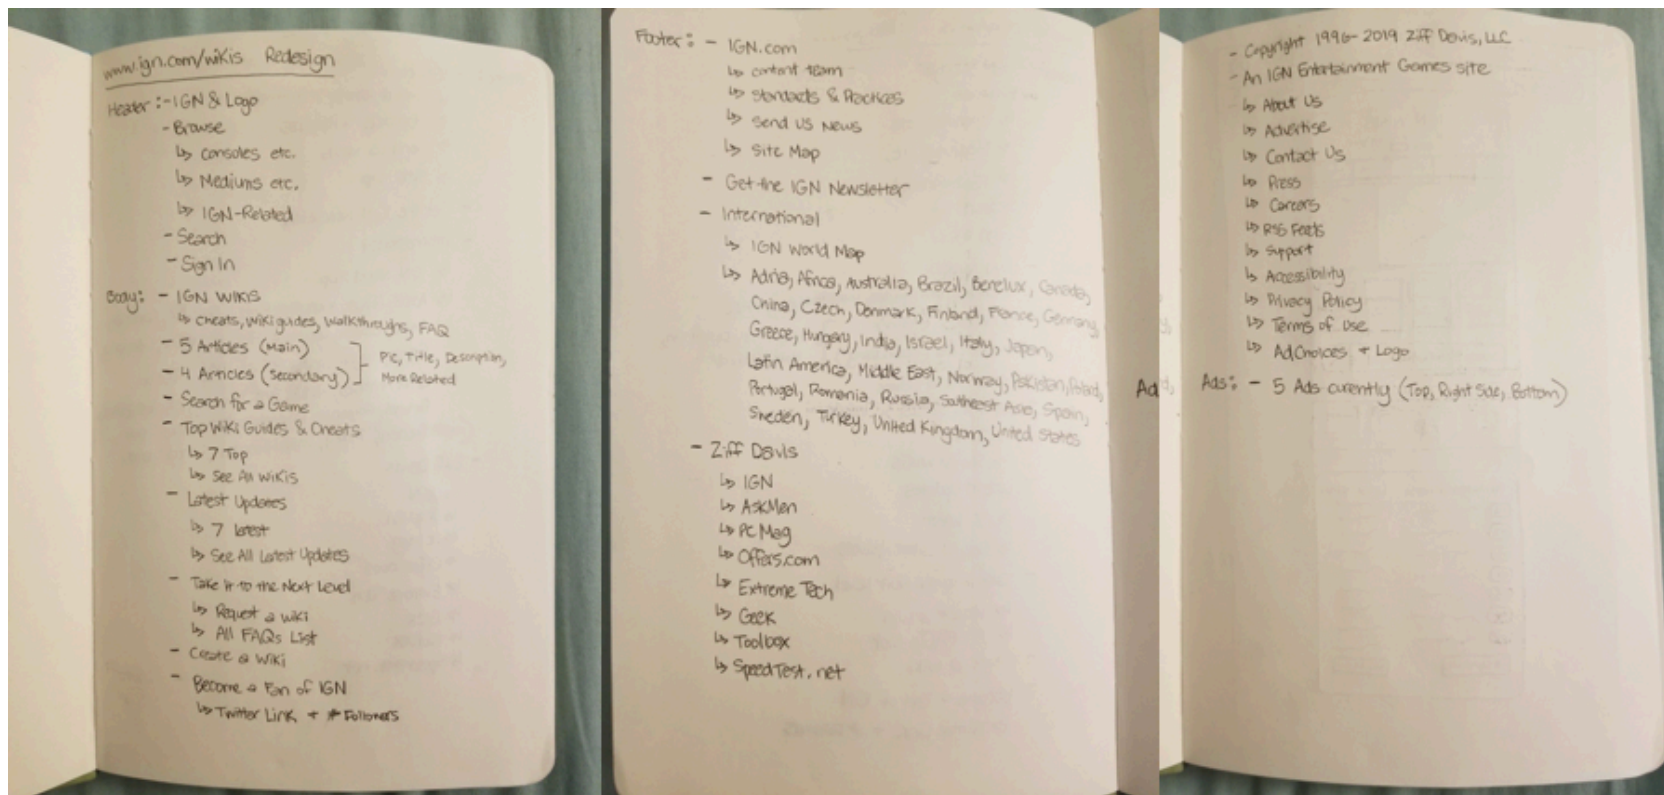 www.ign.com/wikis Redesign
Header: - IGN & Logo
- Browse
↳ Consoles etc.
↳ Mediums etc.
↳ IGN-Related
- Search
- Sign In
Body: - IGN Wikis
↳ Cheats, Wiki guides, Walkthroughs, FAQ
- 5 Articles (Main)
- 4 Articles (Secondary)
Pic, Title, Description,
More Related
- Search for a Game
- Top Wiki Guides & Cheats
↳ 7 Top
↳ See All Wikis
- Latest Updates
↳ 7 latest
↳ See All Latest Updates
- Take it to the Next Level
↳ Request a wiki
↳ All FAQs List
- Create a Wiki
- Become a Fan of IGN
↳ Twitter Link + # Followers
Footer: - IGN.com
↳ content team
↳ Standards & Practices
↳ Send Us News
↳ Site Map
- Get the IGN Newsletter
- International
↳ IGN World Map
↳ Adria, Africa, Australia, Brazil, Benelux, Canada,
China, Czech, Denmark, Finland, France, Germany,
Greece, Hungary, India, Israel, Italy, Japan,
Latin America, Middle East, Norway, Pakistan, Poland,
Portugal, Romania, Russia, Southeast Asia, Spain,
Sweden, Turkey, United Kingdom, United States
- Ziff Davis
↳ IGN
↳ AskMen
↳ PC Mag
↳ Offers.com
↳ Extreme Tech
↳ Geek
↳ Toolbox
↳ SpeedTest.net
Ad
- Copyright 1996-2019 Ziff Davis, LLC
- An IGN Entertainment Games site
↳ About Us
↳ Advertise
↳ Contact Us
↳ Press
↳ Careers
↳ RSS Feeds
↳ Support
↳ Accessibility
↳ Privacy Policy
↳ Terms of Use
↳ AdChoices + Logo
Ads: - 5 Ads curently (Top, Right Side, Bottom)